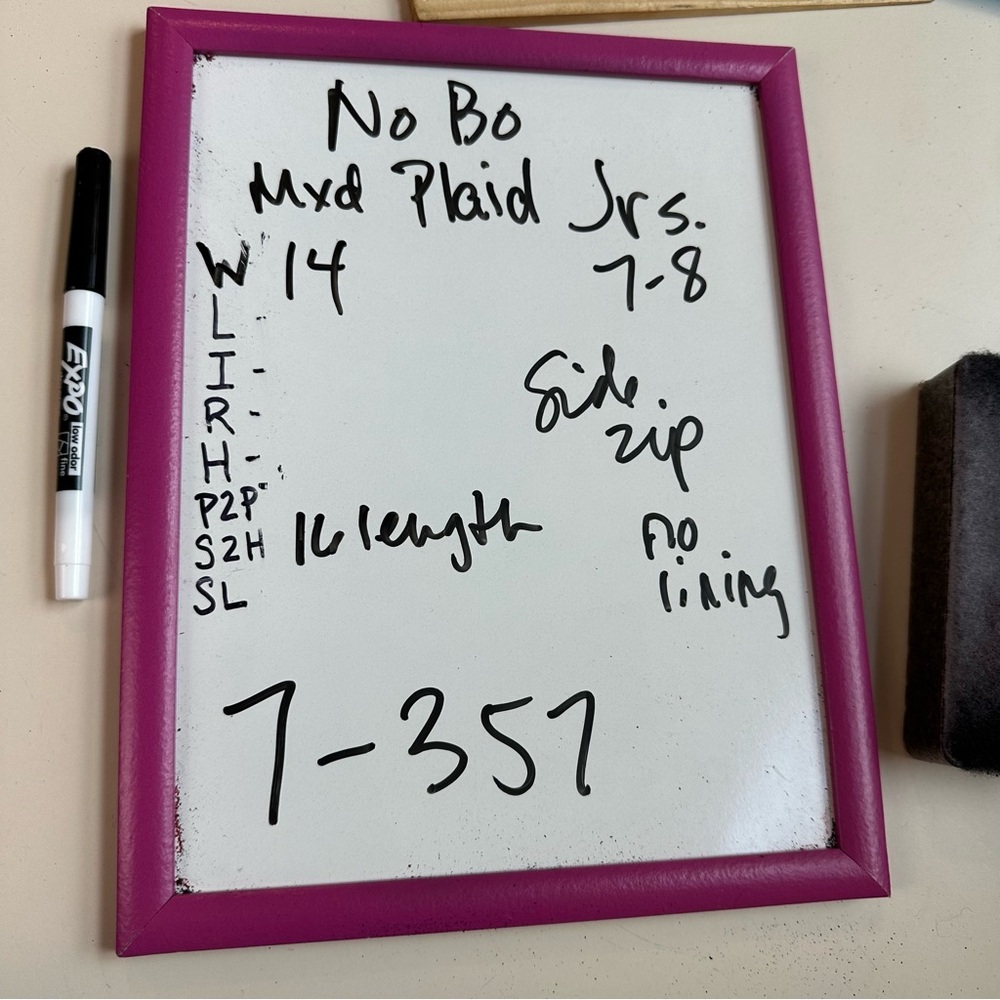 No Bo
Mxd Plaid Jrs.
W 14 7-8
L -
I -
R -
H -
Side
zip
P2P
S2H 16 length
SL
no
lining
7-357
EXPO
low odor
fine